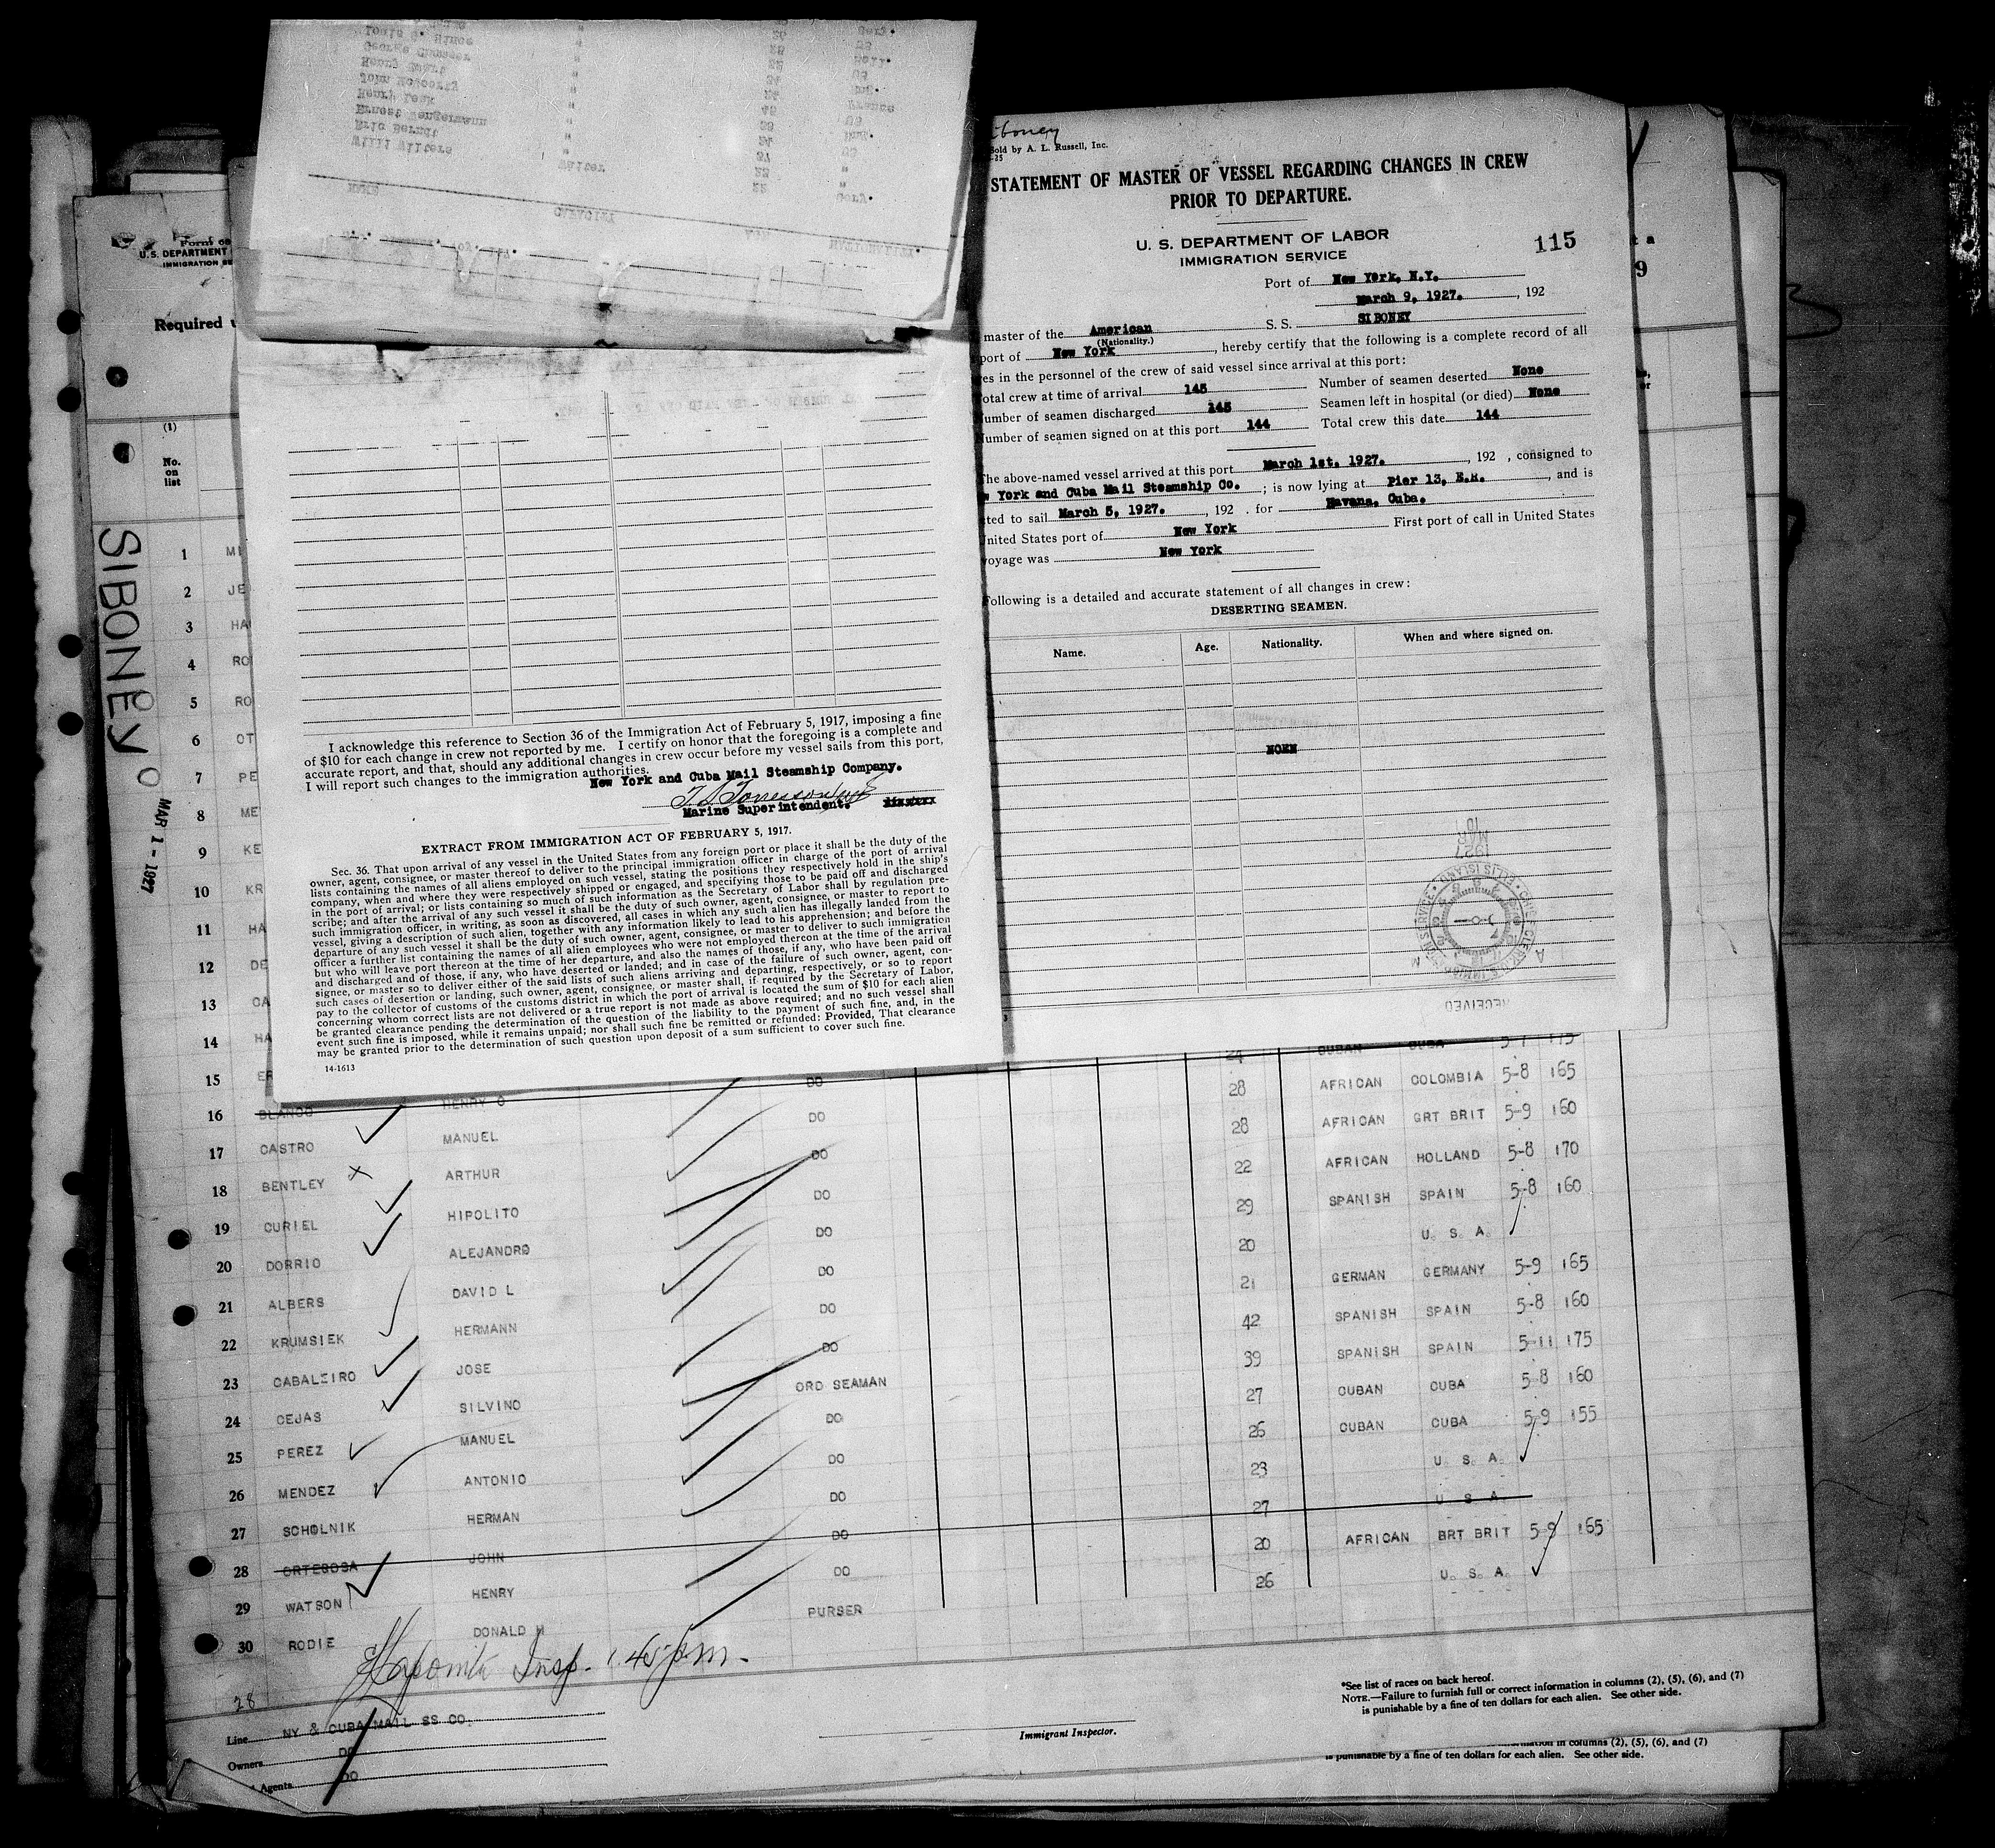 Louis G. Hince
Henry Leak
Eric Berndt
Willi Wilters
Waiter
NAME
Siboney
Sold by A. L. Russell, Inc.
-25
STATEMENT OF MASTER OF VESSEL REGARDING CHANGES IN CREW
PRIOR TO DEPARTURE.
U. S. DEPARTMENT OF LABOR
IMMIGRATION SERVICE
115
Port of New York, N.Y.
March 9, 1927. , 192
master of the American S. S. SIBONEY
(Nationality.)
port of New York , hereby certify that the following is a complete record of all
es in the personnel of the crew of said vessel since arrival at this port:
Total crew at time of arrival 145 Number of seamen deserted None
Number of seamen discharged 145 Seamen left in hospital (or died) None
Number of seamen signed on at this port 144 Total crew this date 144
The above-named vessel arrived at this port March 1st. 1927. , 192 , consigned to
York and Cuba Mail Steamship Co. ; is now lying at Pier 13, E.R. , and is
ted to sail March 5, 1927. , 192 . for Havana, Cuba.
United States port of New York First port of call in United States
voyage was New York
Following is a detailed and accurate statement of all changes in crew:
DESERTING SEAMEN.
Name. Age. Nationality. When and where signed on.
NOEN
RECEIVED
I acknowledge this reference to Section 36 of the Immigration Act of February 5, 1917, imposing a fine
of $10 for each change in crew not reported by me. I certify on honor that the foregoing is a complete and
accurate report, and that, should any additional changes in crew occur before my vessel sails from this port,
I will report such changes to the immigration authorities.
New York and Cuba Mail Steamship Company.
Marine Superintendent.
EXTRACT FROM IMMIGRATION ACT OF FEBRUARY 5, 1917.
Sec. 36. That upon arrival of any vessel in the United States from any foreign port or place it shall be the duty of the
owner, agent, consignee, or master thereof to deliver to the principal immigration officer in charge of the port of arrival
lists containing the names of all aliens employed on such vessel, stating the positions they respectively hold in the ship's
company, when and where they were respectively shipped or engaged, and specifying those to be paid off and discharged
in the port of arrival; or lists containing so much of such information as the Secretary of Labor shall by regulation pre-
scribe; and after the arrival of any such vessel it shall be the duty of such owner, agent, consignee, or master to report to
such immigration officer, in writing, as soon as discovered, all cases in which any such alien has illegally landed from the
vessel, giving a description of such alien, together with any information likely to lead to his apprehension; and before the
departure of any such vessel it shall be the duty of such owner, agent, consignee, or master to deliver to such immigration
officer a further list containing the names of all alien employees who were not employed thereon at the time of the arrival
but who will leave port thereon at the time of her departure, and also the names of those, if any, who have been paid off
and discharged and of those, if any, who have deserted or landed; and in case of the failure of such owner, agent, con-
signee, or master so to deliver either of the said lists of such aliens arriving and departing, respectively, or so to report
such cases of desertion or landing, such owner, agent, consignee, or master shall, if required by the Secretary of Labor,
pay to the collector of customs of the customs district in which the port of arrival is located the sum of $10 for each alien
concerning whom correct lists are not delivered or a true report is not made as above required; and no such vessel shall
be granted clearance pending the determination of the question of the liability to the payment of such fine, and, in the
event such fine is imposed, while it remains unpaid; nor shall such fine be remitted or refunded: Provided, That clearance
may be granted prior to the determination of such question upon deposit of a sum sufficient to cover such fine.
14-1613
U.S. DEPARTMENT
IMMIGRATION SE
Required
(1)
No.
on
list
SIBONEY
MAR 1-1927
1 MI
2 JE
3 HA
4 RO
5 RO
6 OT
7 PE
8 ME
9 KE
10 KR
11 HA
12 DE
13 CA
14 HA
15 ER
16 BLANCO HENRY O DO 24 CUBAN CUBA 5-7 175
17 CASTRO MANUEL DO 28 AFRICAN COLOMBIA 5-8 165
18 BENTLEY ARTHUR DO 28 AFRICAN GRT BRIT 5-9 160
19 CURIEL HIPOLITO DO 22 AFRICAN HOLLAND 5-8 170
20 DORRIO ALEJANDRO DO 29 SPANISH SPAIN 5-8 160
21 ALBERS DAVID L DO 20 U. S. A.
22 KRUMSIEK HERMANN DO 21 GERMAN GERMANY 5-9 165
23 CABALEIRO JOSE DO 42 SPANISH SPAIN 5-8 160
24 CEJAS SILVINO ORD SEAMAN 39 SPANISH SPAIN 5-11 175
25 PEREZ MANUEL DO 27 CUBAN CUBA 5-8 160
26 MENDEZ ANTONIO DO 26 CUBAN CUBA 5-9 155
27 SCHOLNIK HERMAN DO 23 U. S. A.
28 ORTEGOSA JOHN DO 27 U S A
29 WATSON HENRY DO 20 AFRICAN BRT BRIT 5-9 165
30 RODIE DONALD M PURSER 26 U. S. A.
Insp. 1.45 pm.
28
Line NY & CUBA MAIL SS CO.
Owners DO
Agents DO
Immigrant Inspector.
*See list of races on back hereof.
NOTE.—Failure to furnish full or correct information in columns (2), (5), (6), and (7)
is punishable by a fine of ten dollars for each alien. See other side.
in columns (2), (5), (6), and (7)
is punishable by a fine of ten dollars for each alien. See other side.